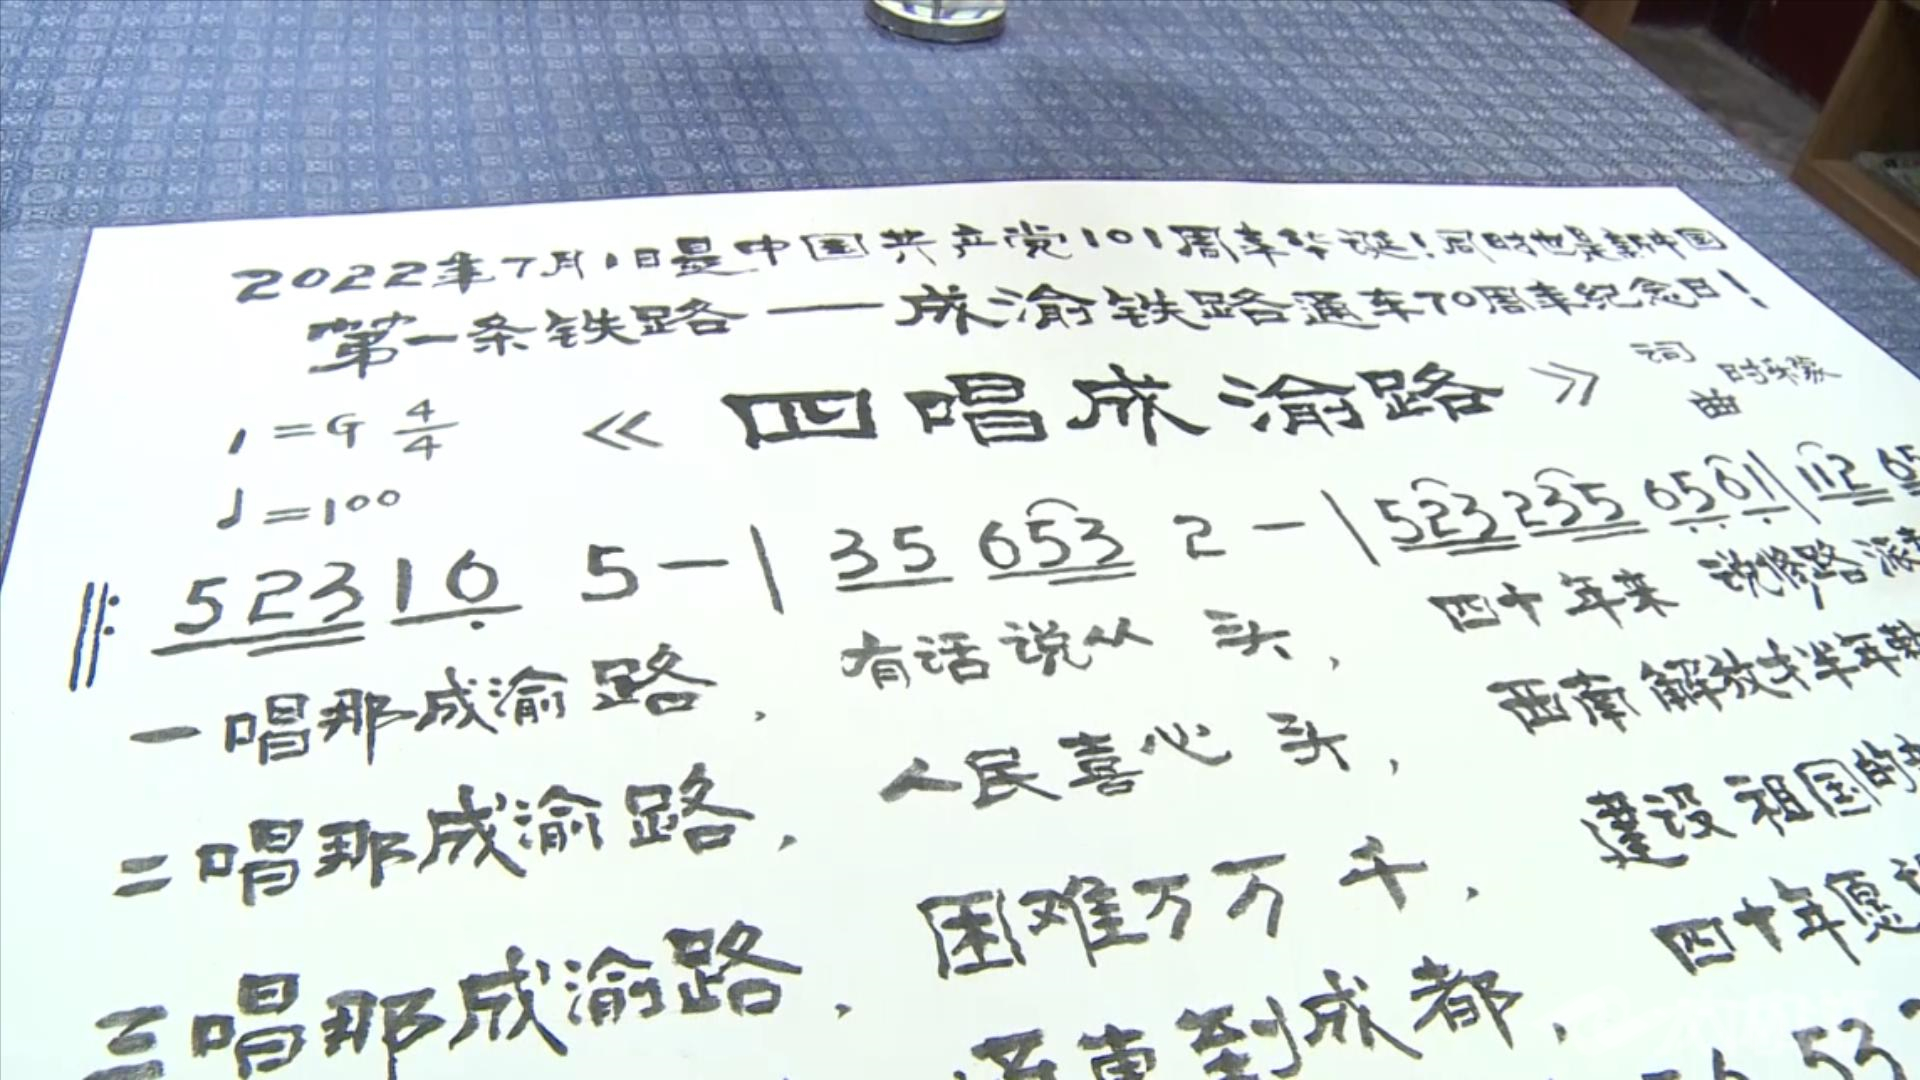 2022年7月1日是中国共产党101周年华诞!同时也是新中国
第一条铁路——成渝铁路通车70周年纪念日!
《四唱成渝路》
词
曲
1=G 4/4
♩=100
‖: 52316 5-| 35 653 2-| 523 235 6561| 112 65
一唱那成渝路, 有话说从头, 四十年来 说修路
二唱那成渝路, 人民喜心头, 西南解放才半年
三唱那成渝路, 困难万万千, 建设祖国的
通车到成都, 四十年愿
53